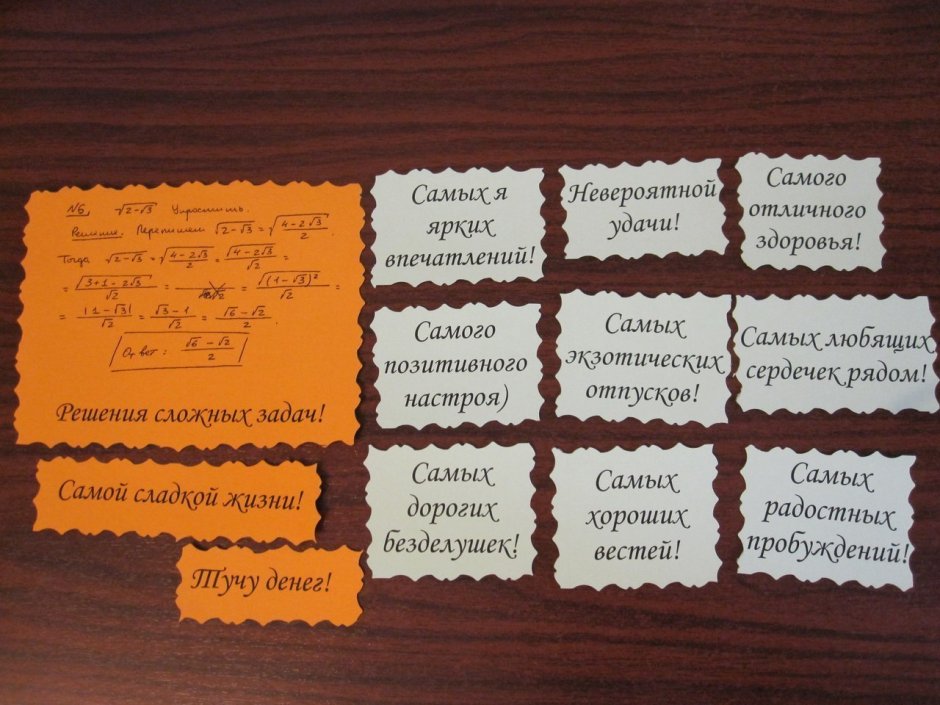 №6. √2-√3 Упростить.
Решение. Перепишем √2-√3 = √(4-2√3)/2.
Тогда √2-√3 = √(4-2√3)/2 = √4-2√3/√2 =
= √3+1-2√3/√2 = = √(1-√3)²/√2 =
= |1-√3|/√2 = √3-1/√2 = √6-√2/2.
Ответ: √6-√2/2
Решения сложных задач!
Самой сладкой жизни!
Тучу денег!
Самых я
ярких
впечатлений!
Невероятной
удачи!
Самого
отличного
здоровья!
Самого
позитивного
настроя)
Самых
экзотических
отпусков!
Самых любящих
сердечек рядом!
Самых
дорогих
безделушек!
Самых
хороших
вестей!
Самых
радостных
пробуждений!